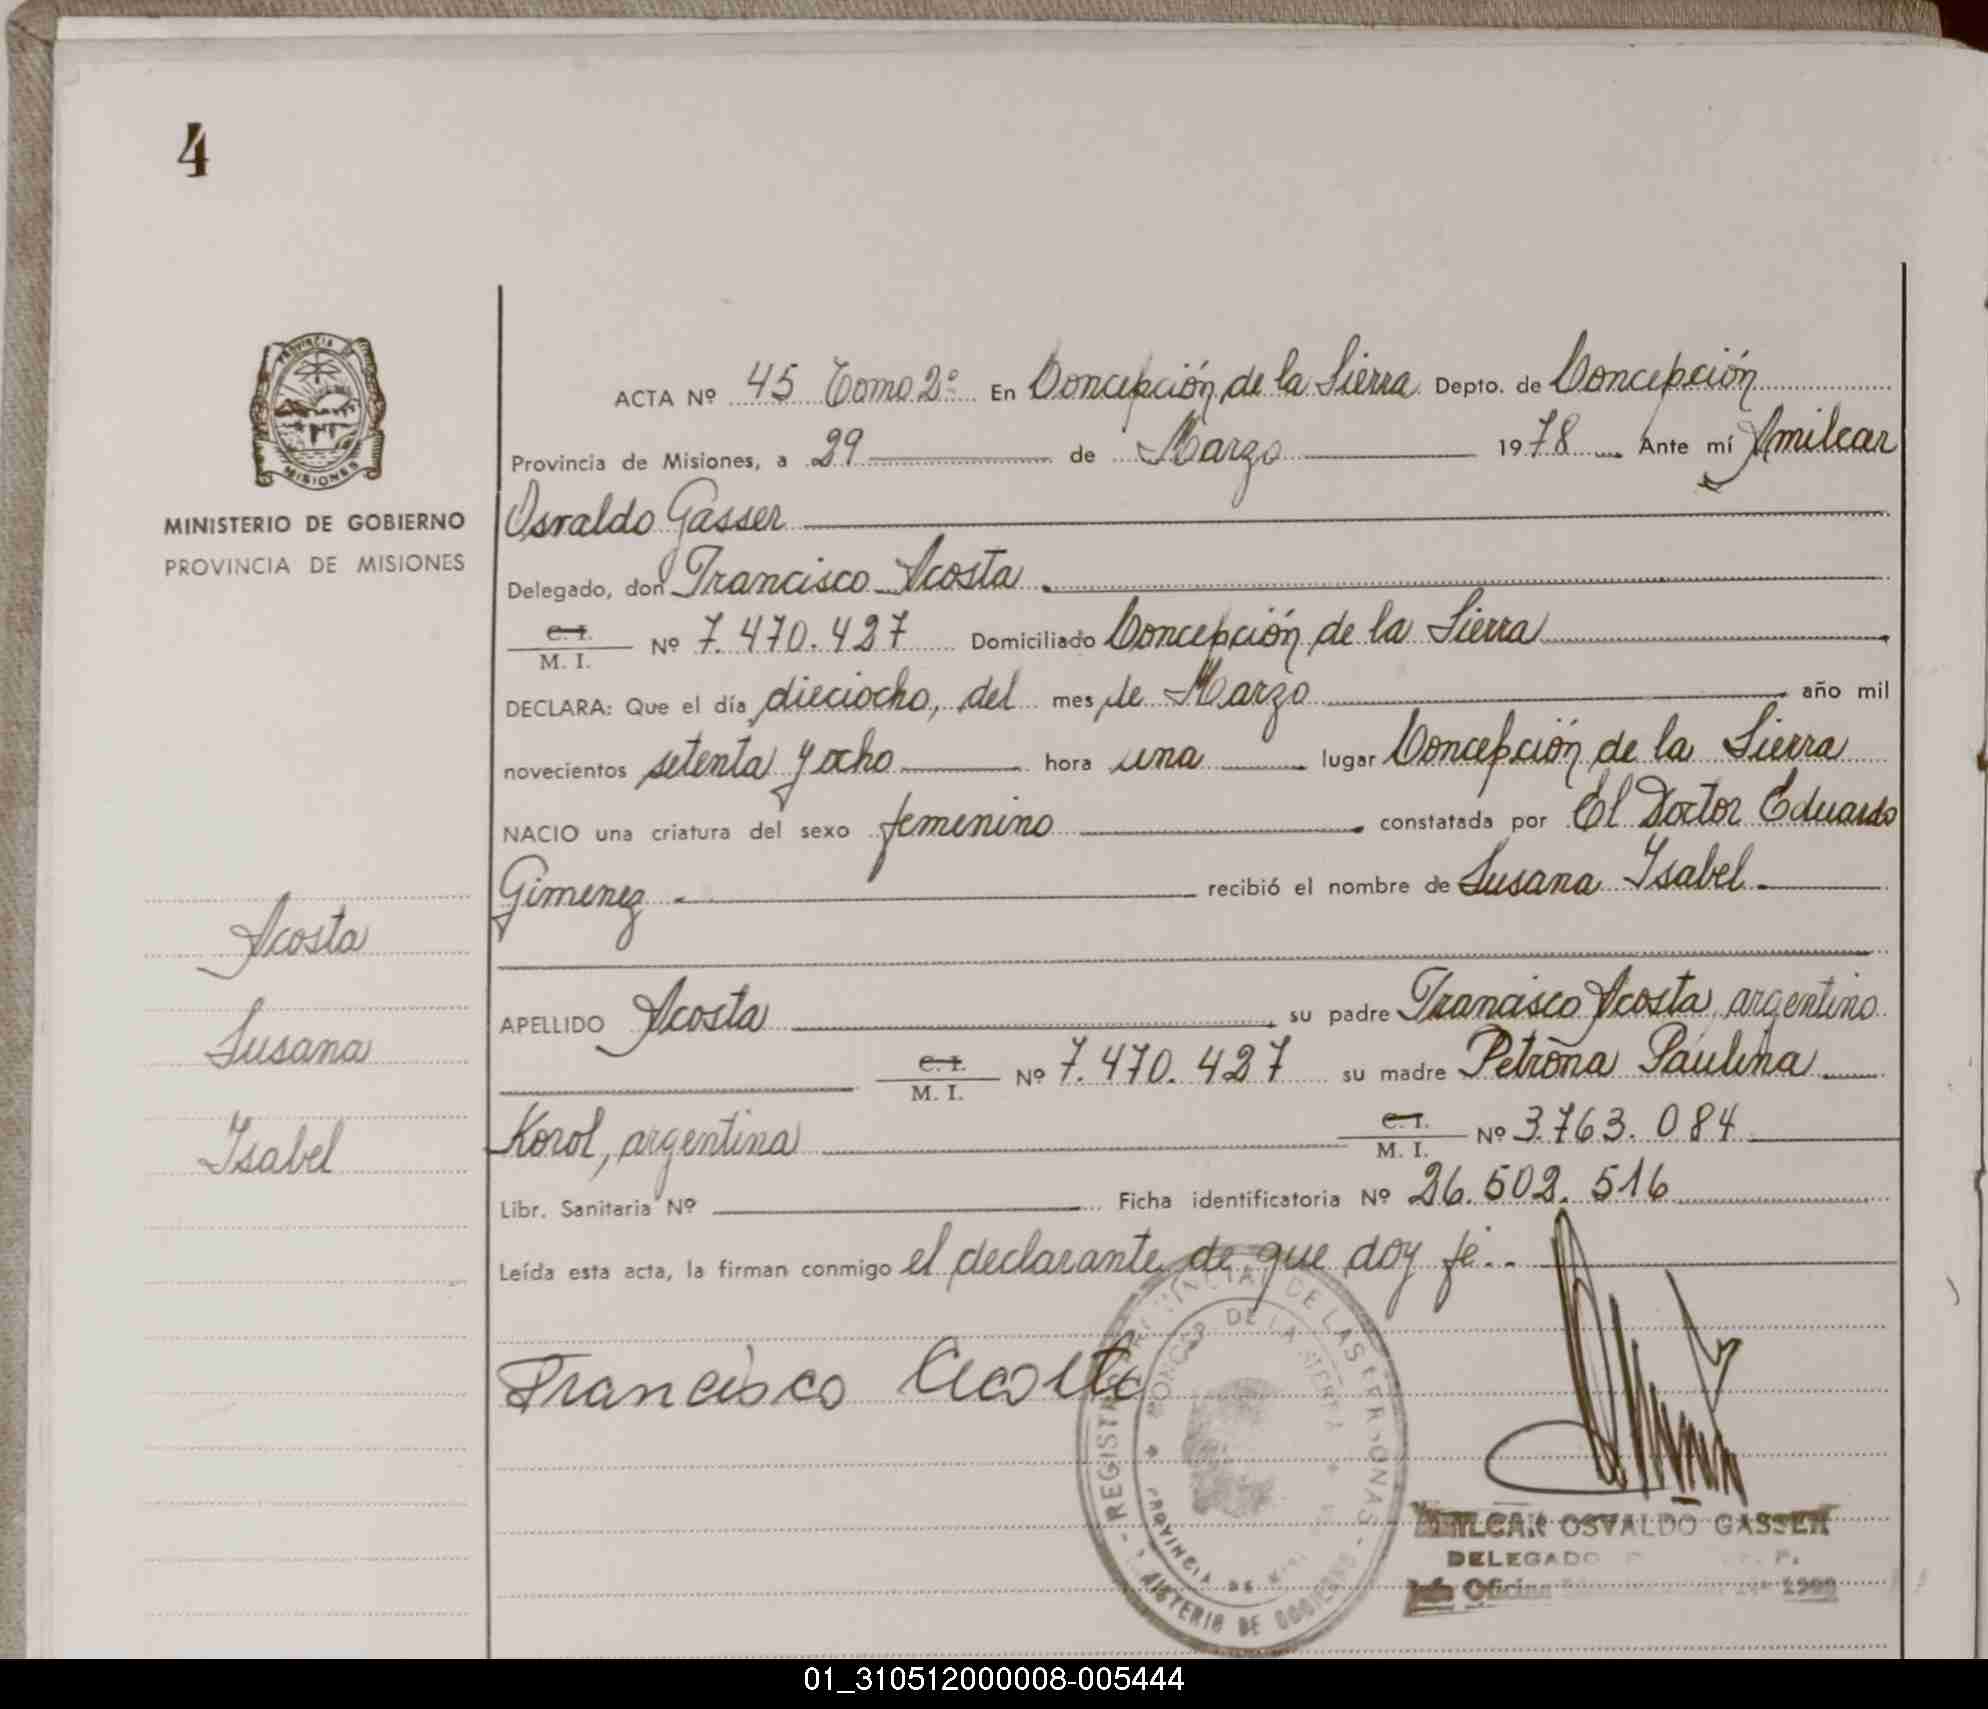 4
PROVINCIA DE
MISIONES
MINISTERIO DE GOBIERNO
PROVINCIA DE MISIONES
Acosta
Susana
Isabel
ACTA Nº 45 Tomo 2º En Concepción de la Sierra Depto. de Concepción
Provincia de Misiones, a 29 de Marzo 1978 Ante mí Amilcar
Osvaldo Gasser
Delegado, don Francisco Acosta.
C. I.
M. I. Nº 7.470.427 Domiciliado Concepción de la Sierra
DECLARA: Que el día dieciocho, del mes de Marzo año mil
novecientos setenta y ocho hora una lugar Concepción de la Sierra
NACIO una criatura del sexo femenino constatada por El Doctor Eduardo
Gimenez recibió el nombre de Susana Isabel
APELLIDO Acosta su padre Francisco Acosta, argentino
C. I.
M. I. Nº 7.470.427 su madre Petrona Paulina
Korol, argentina C. I.
M. I. Nº 3.763.084
Libr. Sanitaria Nº Ficha identificatoria Nº 26.502.516
Leída esta acta, la firman conmigo el declarante de que doy fé..
Francisco Acosta
REGISTRO PROVINCIAL DE LAS PERSONAS
DE LA SIERRA
PROVINCIA DE
MINISTERIO DE GOBIERNO
AMILCAR OSVALDO GASSER
DELEGADO
Oficina
01_310512000008-005444